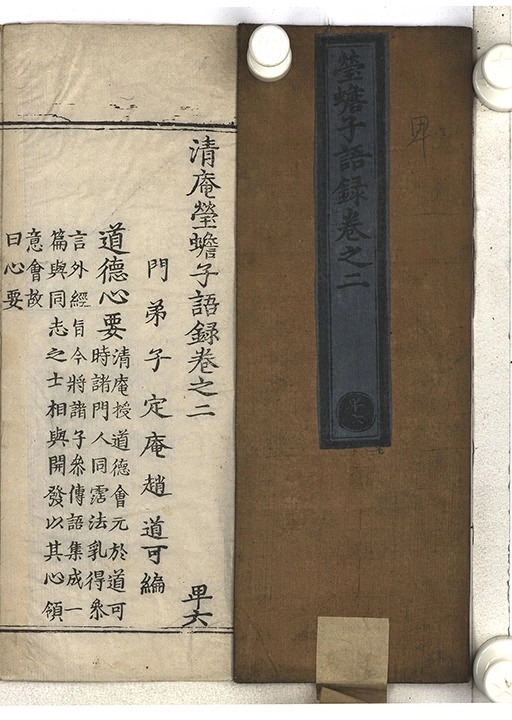 卑
瑩蟾子語録卷之二
卑六
清庵瑩蟾子語録卷之二
卑六
門弟子定庵趙道可編
道德心要
清庵授道德會元於道可
時諸門人同霑法乳得叅
言外經旨今將諸子叅傳語集成一
篇與同志之士相與開發以其心領
意會故
曰心要